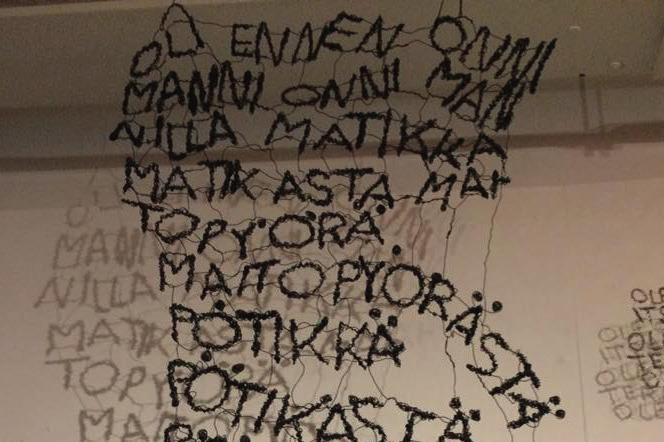 OLI ENNEN ONNI
MANNI ONNI MAN
NILLA MATIKKA
MATIKASTA MAI
TOPYÖRÄ
MAITOPYÖRÄSTÄ
PÖTIKKÄ
PÖTIKÄSTÄ